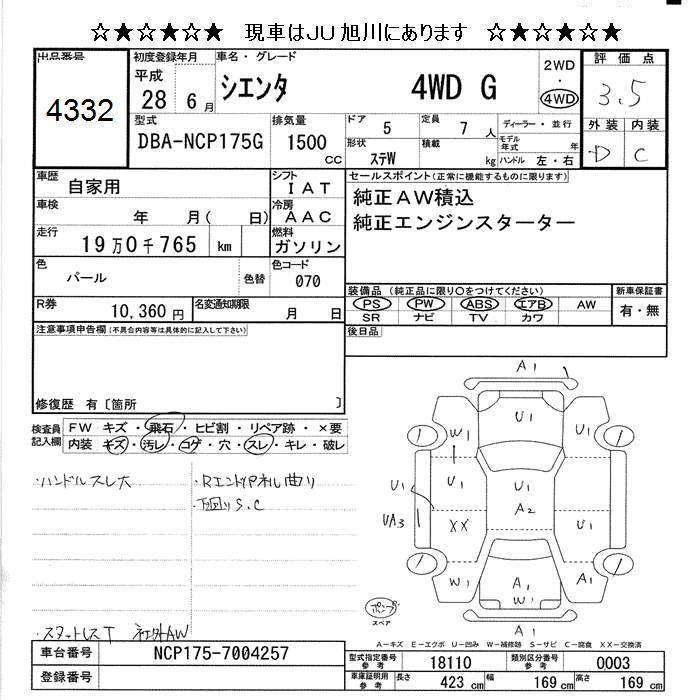 ☆★☆★☆★ 現車はJU旭川にあります ☆★☆★☆★
出品番号
4332
初度登録年月
平成
28 6月
車名・グレード
シエンタ 4WD G
2WD
・
4WD
評価点
3.5
外装 内装
D C
型式
DBA-NCP175G
排気量
1500
CC
ドア
5
形状
ステW
定員
7 人
積載
kg
ディーラー・並行
モデル
年式 年
ハンドル 左・右
車歴
自家用
シフト
I A T
車検
年 月( 日)
冷房
A A C
走行
19万0千765 km
燃料
ガソリン
色
パール
色替
色コード
070
R券
10,360円
名変通知期限
月 日
セールスポイント(正常に機能するものに限ります)
純正AW積込
純正エンジンスターター
装備品 (純正品に限り○をつけてください)
PS PW ABS エアB AW
SR ナビ TV カワ
新車保証書
有・無
後日品
注意事項申告欄(不具合内容等は具体的に記入して下さい)
修復歴 有〔箇所 〕
検査員
記入欄
FW キズ・飛石・ヒビ割・リペア跡・×要
内装 キズ・汚レ・コゲ・穴・スレ・キレ・破レ
・ハンドルスレ大
・下回りS.C
・スタットレスT 社外AW
A1
U1
W1
U1
U1
A2
U1
UA3
XX
U1
W1
A1
W1
A1
A1
1
1
1
1
スペア
A-キズ E-エクボ U-凹み W-補修跡 S-サビ C-腐食 XX-交換済
車台番号
NCP175-7004257
登録番号
型式指定番号
参考
18110
類別区分番号
参考
0003
車庫証明用
参考
長さ
423 cm
幅
169 cm
高さ
169 cm